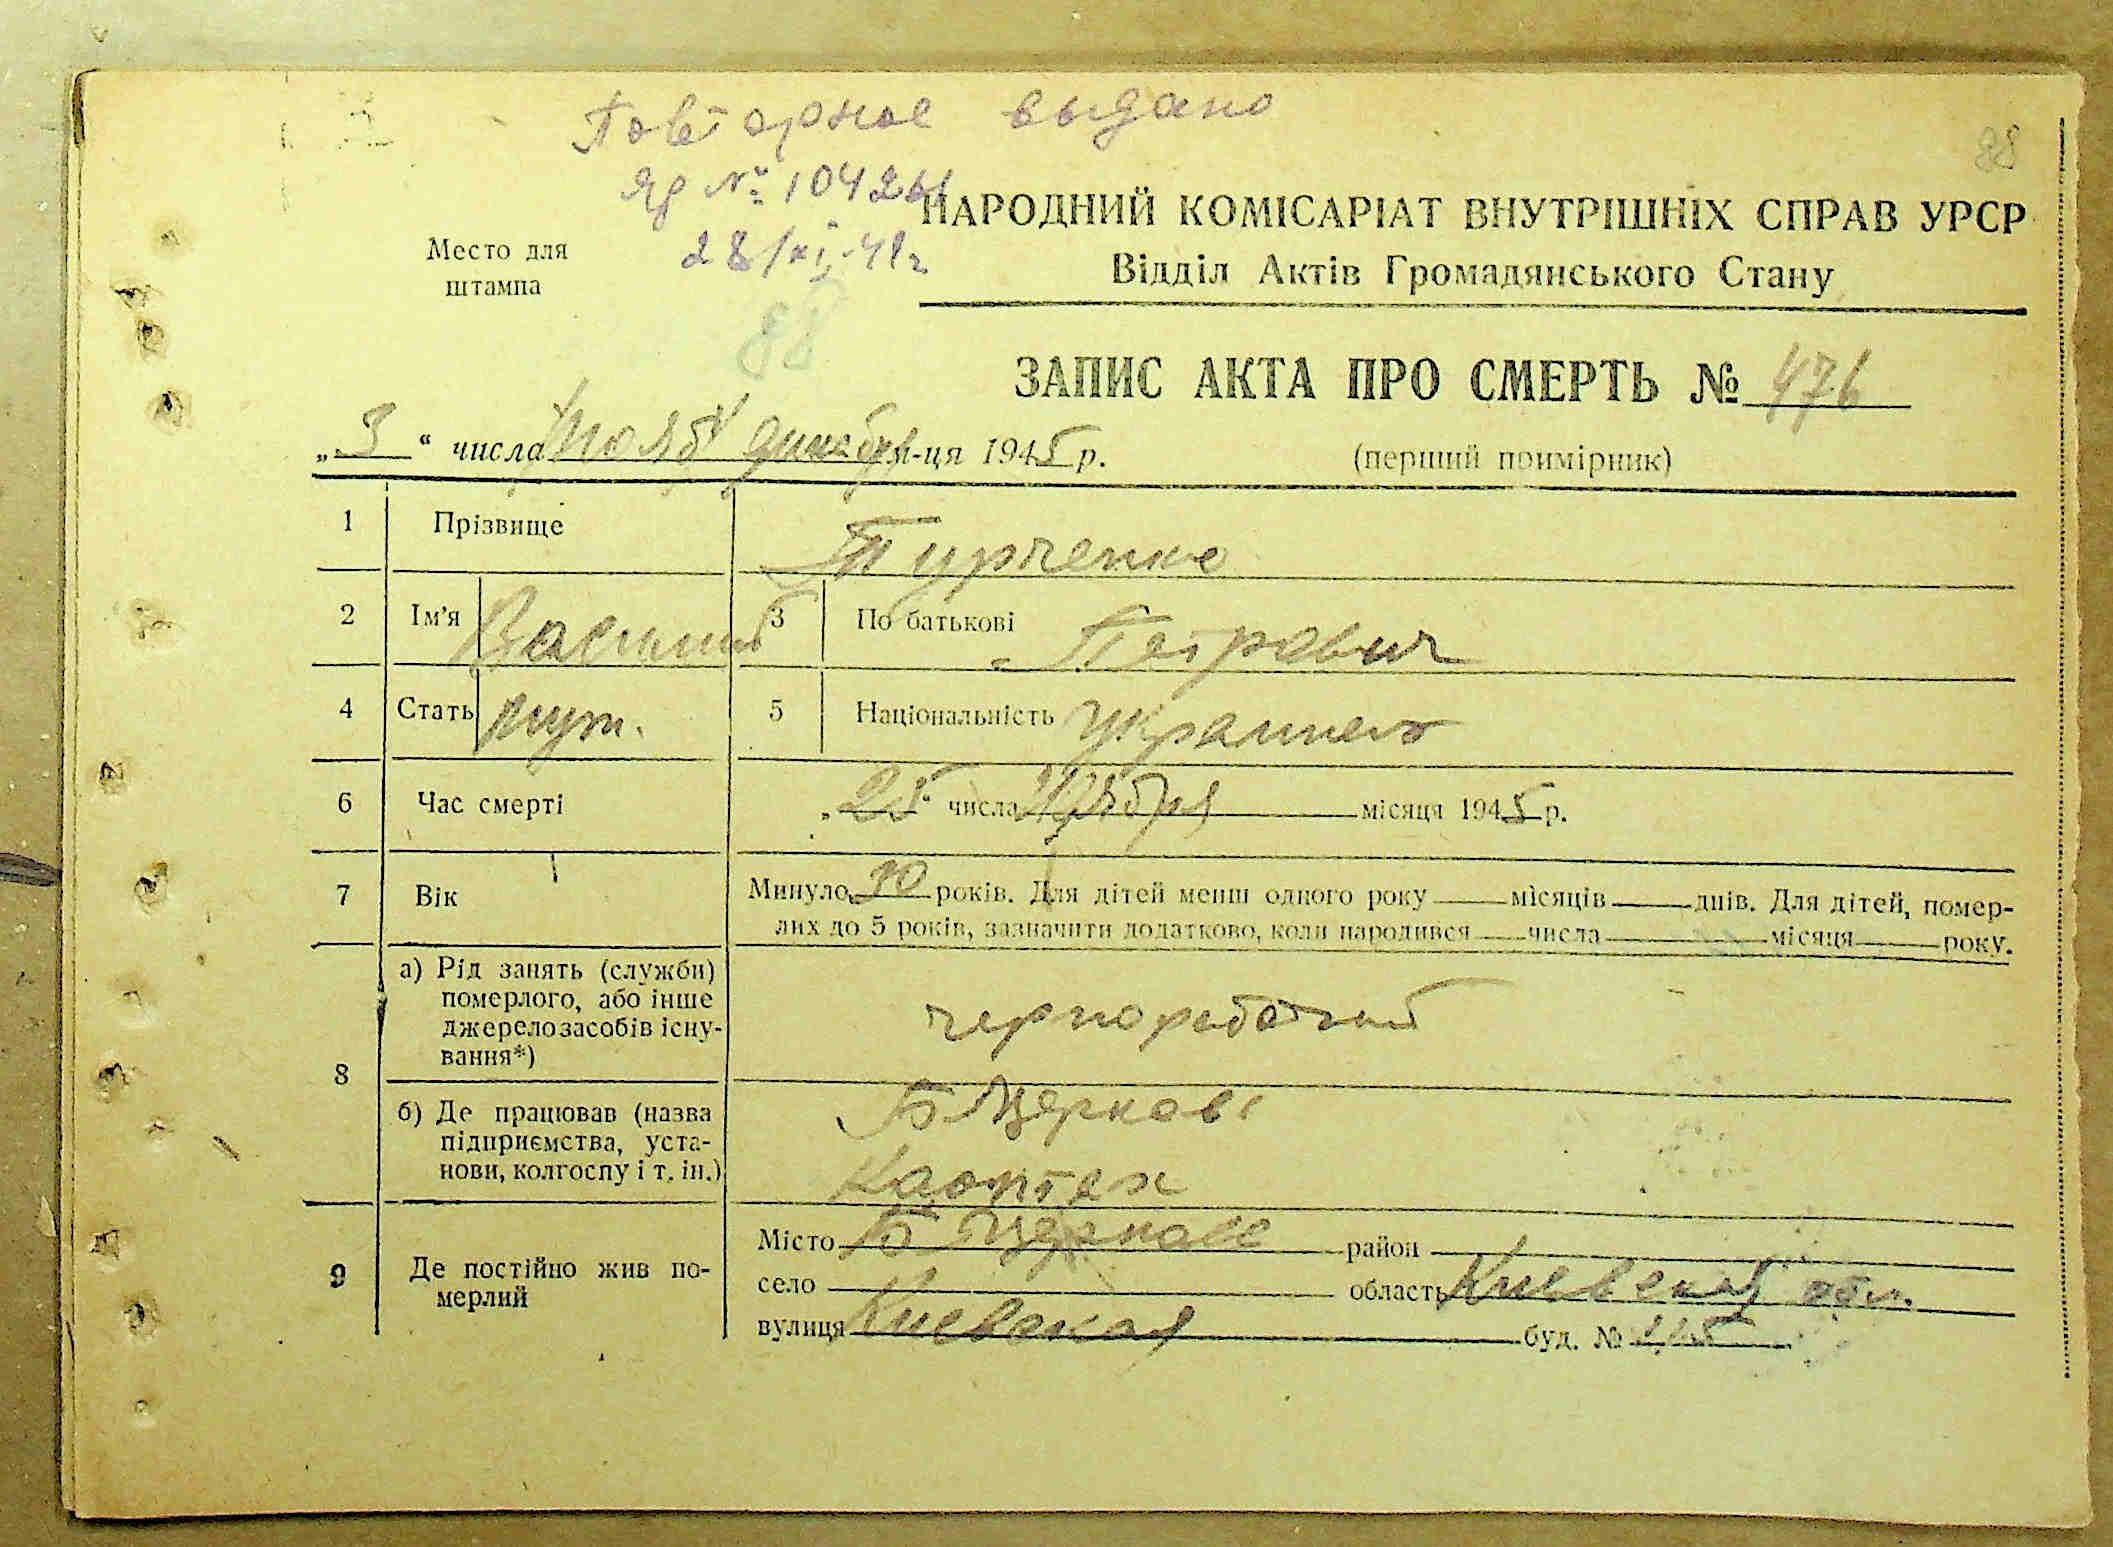 Повторное выдано
88
яд № 10426
28/XI-41г
НАРОДНИЙ КОМІСАРІАТ ВНУТРІШНІХ СПРАВ УРСР
Відділ Актів Громадянського Стану
Место для
штампа
88
ЗАПИС АКТА ПРО СМЕРТЬ № 476
„3“ числа декабря м-ця 1945 р.
(перший примірник)
1 Прізвище Турченко
2 Ім'я Василий 3 По батькові Петрович
4 Стать муж. 5 Національність украинец
6 Час смерті 25 числа ноября місяця 1945 р.
7 Вік Минуло років. Для дітей менш одного року місяців днів. Для дітей, помер-
лих до 5 років, зазначити додатково, коли народився числа місяця року.
8 а) Рід занять (служби)
померлого, або інше
джерело засобів існу-
вання*)
чернорабочий
б) Де працював (назва
підприємства, уста-
нови, колгоспу і т. ін.)
Б Церковь
9 Де постійно жив по-
мерлий
Місто Б Церковь район
село область Киевская обл.
вулиця Киевская буд. № 115